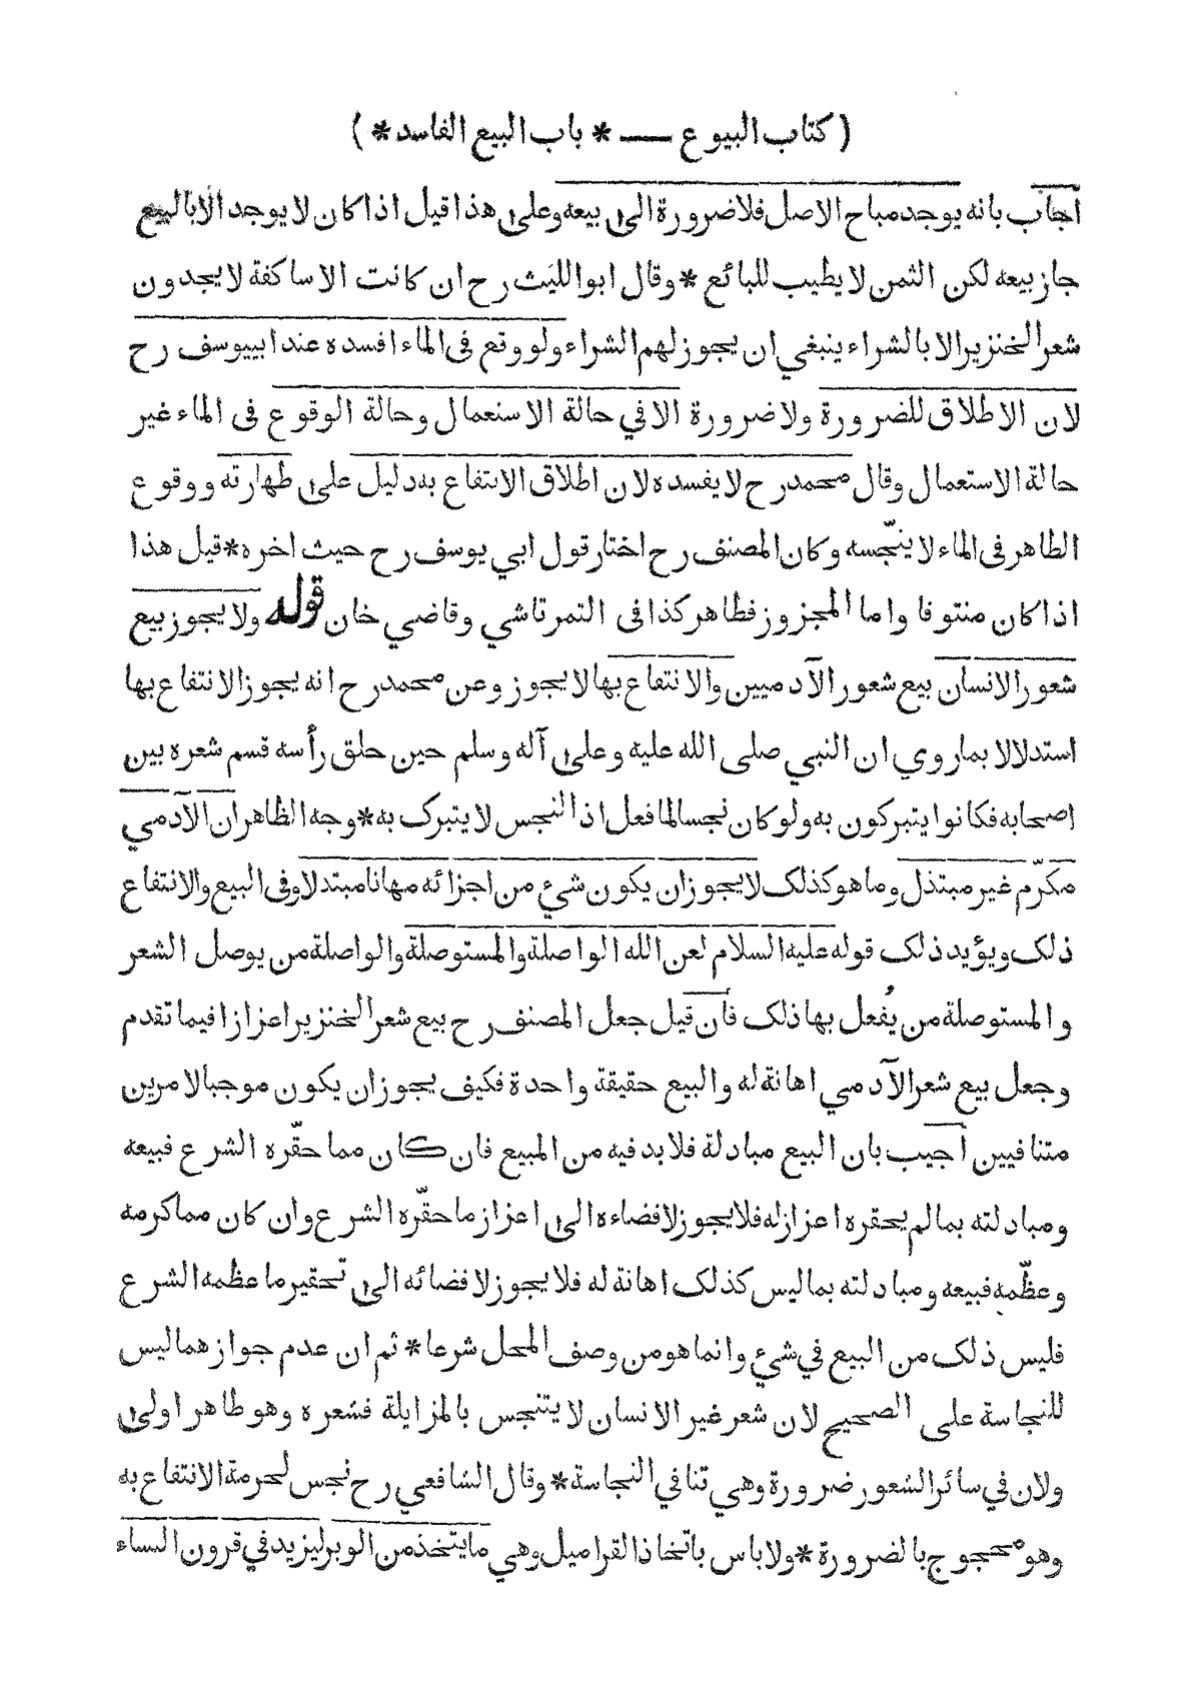 ( كتاب البيوع ـــ * باب البيع الفاسد * )
اجاب بانه يوجد مباح الاصل فلا ضرورة الى بيعه وعلى هذا قيل اذا كان لا يوجد الا بالبيع
جاز بيعه لكن الثمن لا يطيب للبائع * وقال ابو الليث رح ان كانت الاساكفة لا يجدون
شعر الخنزير الا بالشراء ينبغي ان يجوز لهم الشراء ولو وقع فى الماء افسده عند ابييوسف رح
لان الاطلاق للضرورة ولا ضرورة الا في حالة الاستعمال وحالة الوقوع فى الماء غير
حالة الاستعمال وقال محمد رح لا يفسده لان اطلاق الانتفاع به دليل على طهارته ووقوع
الطاهر فى الماء لا ينجّسه وكان المصنف رح اختار قول ابي يوسف رح حيث اخره * قيل هذا
اذا كان منتوفا واما المجزوز فطاهر كذا فى التمرتاشي وقاضي خان قوله ولا يجوز بيع
شعور الانسان بيع شعور الآدميين والانتفاع بها لا يجوز وعن محمد رح انه يجوز الانتفاع بها
استدلالا بما روي ان النبي صلى الله عليه وعلى آله وسلم حين حلق رأسه قسم شعره بين
اصحابه فكانوا يتبركون به ولو كان نجسا لما فعل اذ النجس لا يتبرك به * وجه الظاهر ان الآدمي
مكرّم غير مبتذل وما هو كذلك لا يجوز ان يكون شيء من اجزائه مهانا مبتدلا وفى البيع والانتفاع
ذلك ويؤيد ذلك قوله عليه السلام لعن الله الواصلة والمستوصلة والواصلة من يوصل الشعر
والمستوصلة من يُفعل بها ذلك فان قيل جعل المصنف رح بيع شعر الخنزير اعزازا فيما تقدم
وجعل بيع شعر الآدمي اهانة له والبيع حقيقة واحدة فكيف يجوز ان يكون موجبا لامرين
متنافيين اجيب بان البيع مبادلة فلا بد فيه من المبيع فان كان مما حقّره الشرع فبيعه
ومبادلته بما لم يحقره اعزاز له فلا يجوز لافضاءه الى اعزاز ما حقّره الشرع وان كان مما كرمه
وعظّمه فبيعه ومبادلته بما ليس كذلك اهانة له فلا يجوز لافضائه الى تحقير ما عظمه الشرع
فليس ذلك من البيع في شيء وانما هو من وصف المحل شرعا * ثم ان عدم جوازهما ليس
للنجاسة على الصحيح لان شعر غير الانسان لا يتنجس بالمزايلة فشعره وهو طاهر اولى
ولان في سائر الشعور ضرورة وهي تنافي النجاسة * وقال الشافعي رح نجس لحرمة الانتفاع به
وهو محجوج بالضرورة * ولا باس باتخاذ القراميل وهي ما يتخذ من الوبر ليزيد في قرون النساء